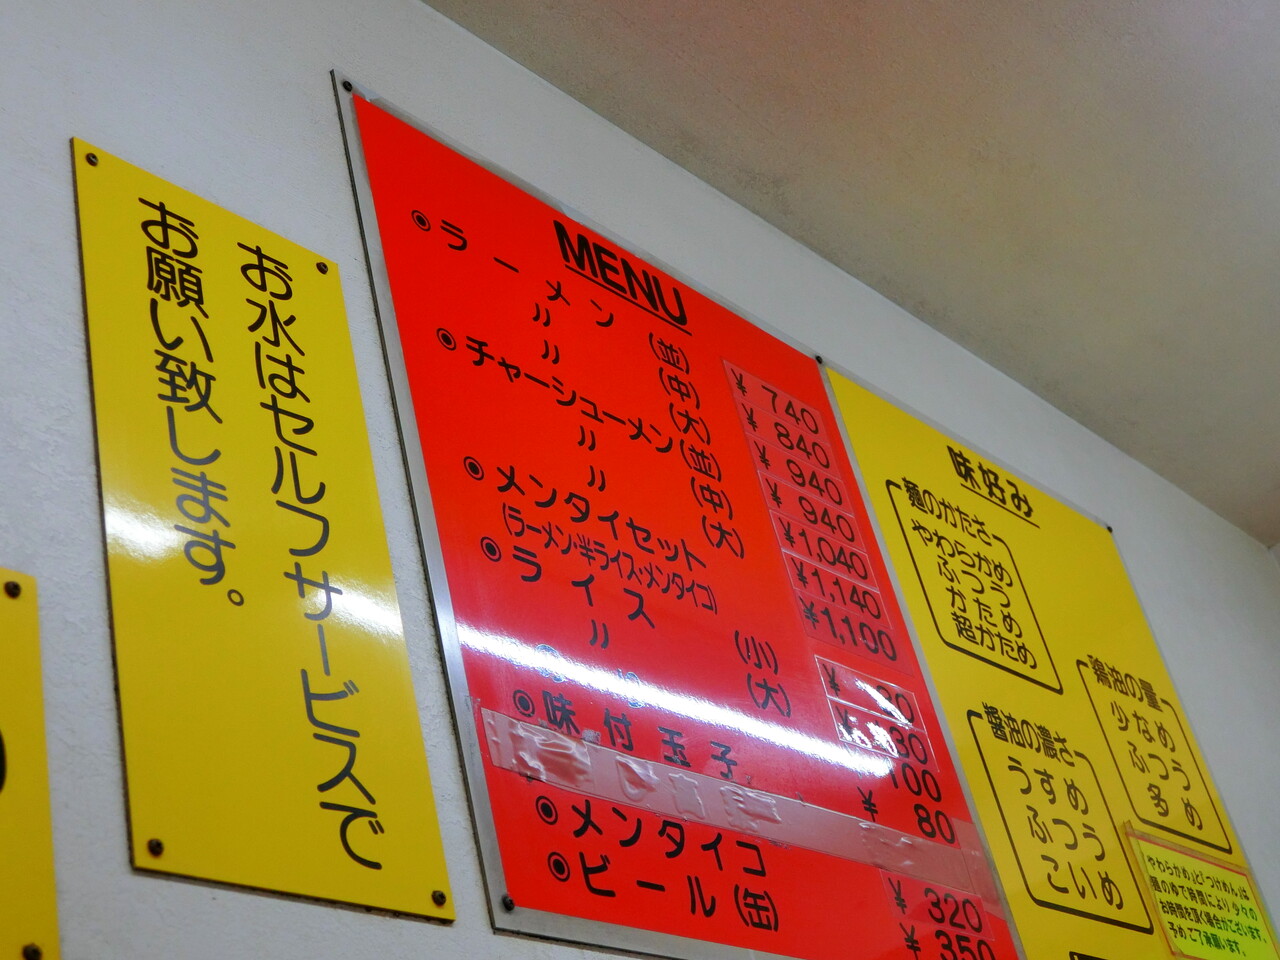 お水はセルフサービスで
お願い致します。
MENU
◉ラーメン(並) ¥740
〃(中) ¥840
〃(大) ¥940
◉チャーシューメン(並) ¥940
〃(中) ¥1,040
〃(大) ¥1,140
◉メンタイセット ¥1,100
(ラーメン・半ライス・メンタイコ)
◉ライス(小)
〃(大)
100
◉味付玉子 ¥80
◉メンタイコ ¥320
◉ビール(缶) ¥350
味好み
麺のかたさ
やわらかめ
ふつう
かため
超かため
鶏油の量
少なめ
ふつう
多め
醤油の濃さ
うすめ
ふつう
こいめ
やわらかめ」と「つけめん」は
麺のゆで時間により少々の
お時間を頂く場合がございます。
予めご了承願います。